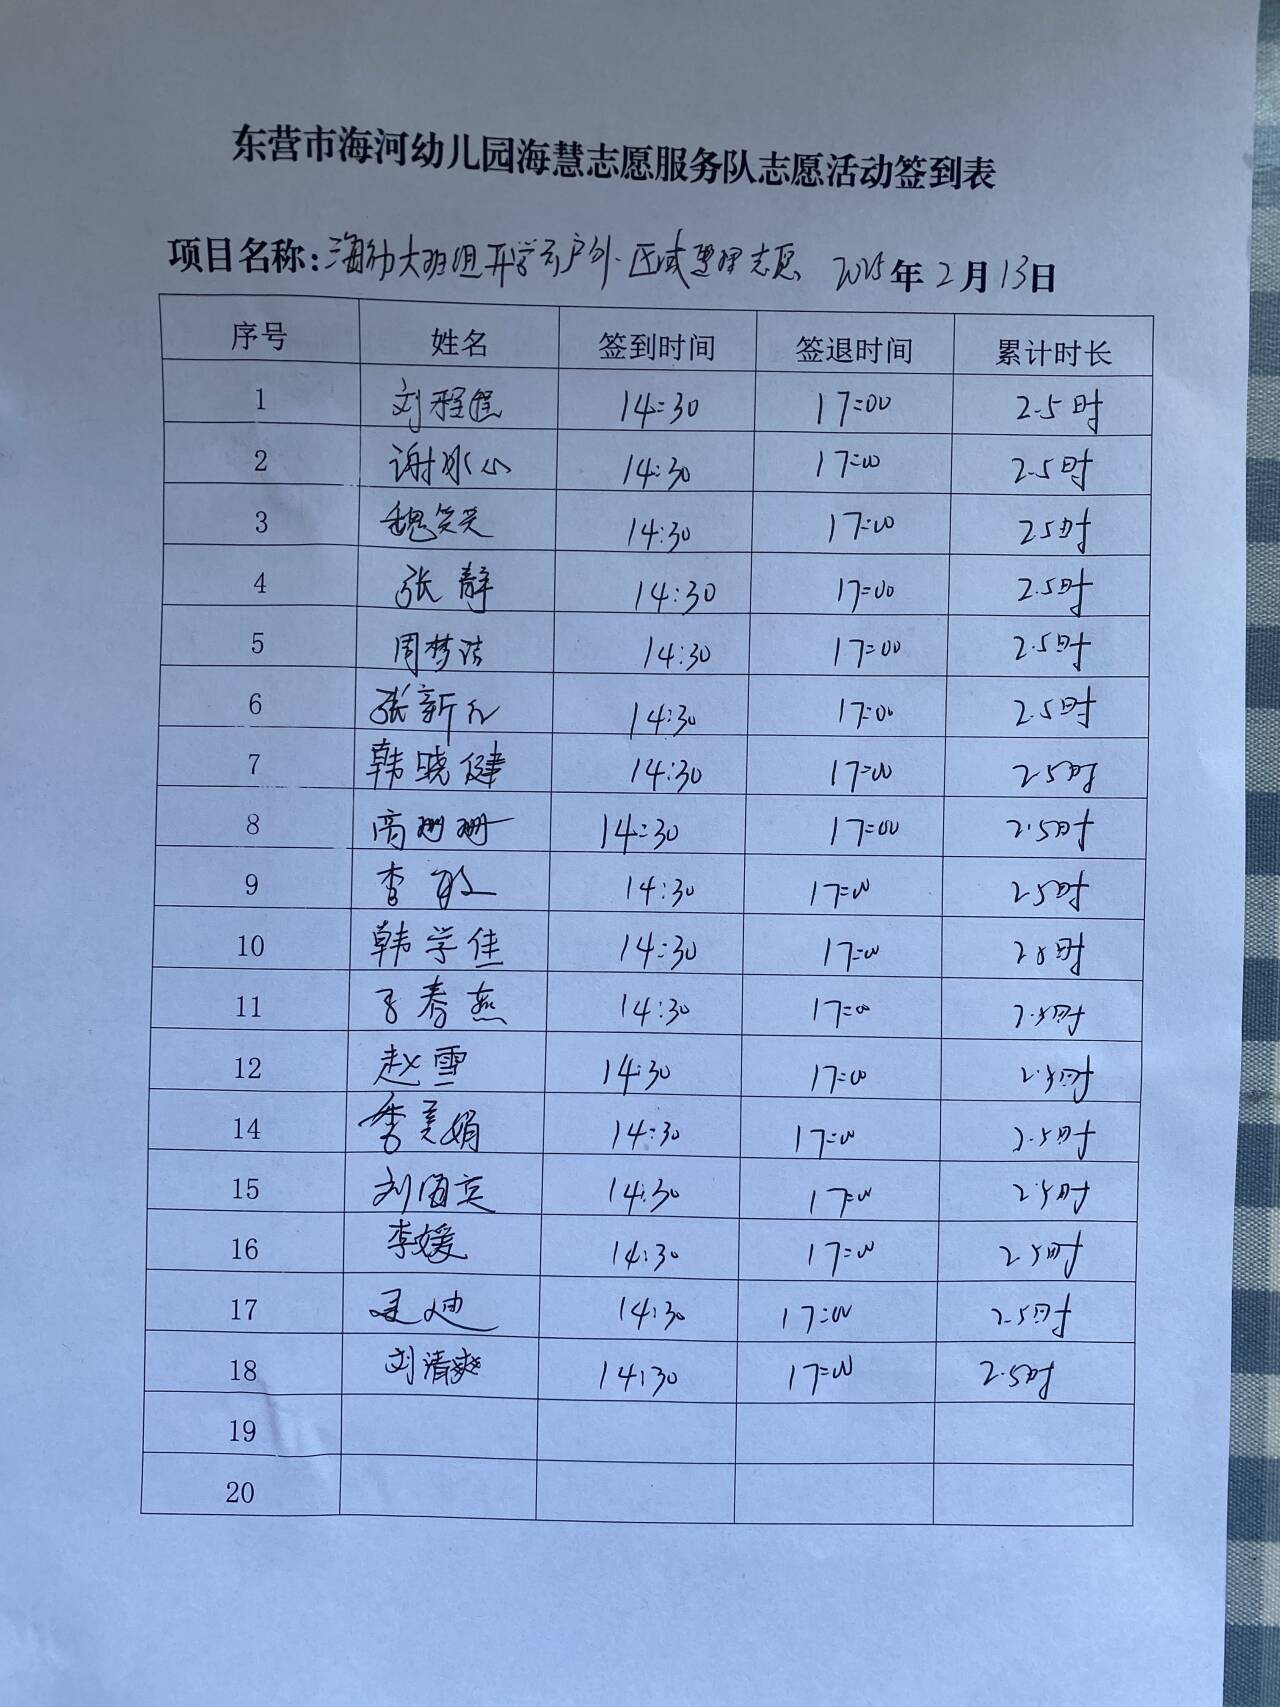 东营市海河幼儿园海慧志愿服务队志愿活动签到表
项目名称：海幼大班组开学前户外、区域整理志愿 2025年2月13日
序号 姓名 签到时间 签退时间 累计时长
1 刘程程 14:30 17:00 2.5时
2 谢冰心 14:30 17:00 2.5时
3 魏笑笑 14:30 17:00 2.5时
4 张静 14:30 17:00 2.5时
5 周梦洁 14:30 17:00 2.5时
6 张新 14:30 17:00 2.5时
7 韩晓健 14:30 17:00 2.5时
8 高珊珊 14:30 17:00 2.5时
9 李敏 14:30 17:00 2.5时
10 韩学佳 14:30 17:00 2.5时
11 春燕 14:30 17:00 2.5时
12 赵雪 14:30 17:00 2.5时
14 季美娟 14:30 17:00 2.5时
15 刘海英 14:30 17:00 2.5时
16 李媛 14:30 17:00 2.5时
17 迪 14:30 17:00 2.5时
18 刘清爽 14:30 17:00 2.5时
19
20